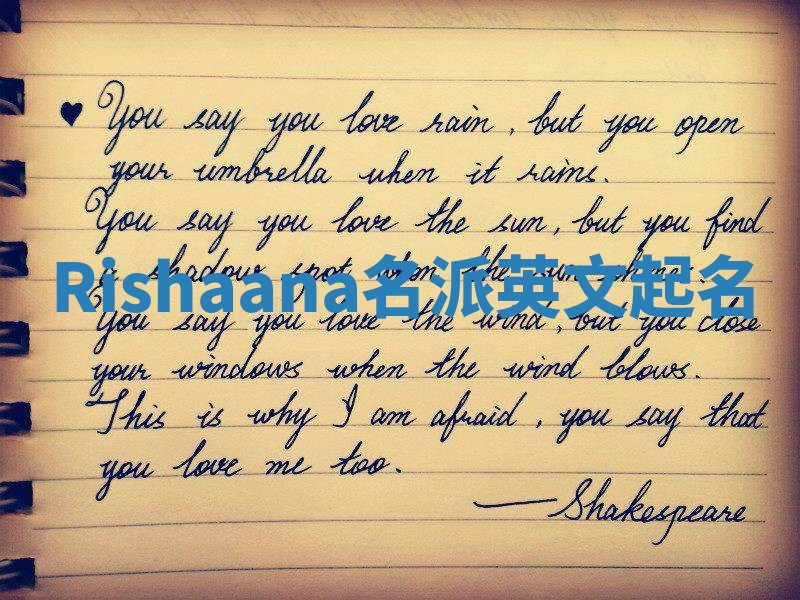 ♥ You say you love rain, but you open
your umbrella when it rains.
You say you love the sun, but you find
a shadow spot when the sun shines.
Rishaana名派英文起名
You say you love the wind, but you close
your windows when the wind blows.
This is why I am afraid, you say that
you love me too.
—Shakespeare